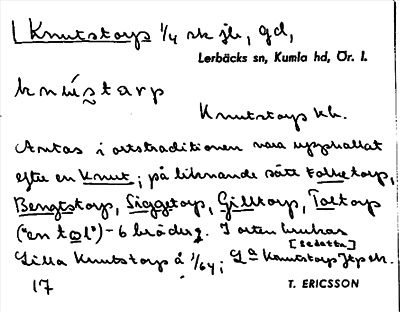 Knutstorp 1/4 sk jb, gd,
Lerbäcks sn, Kumla hd, Ör. l.
knústarp
Knutstorps kb.
Antas i ortstraditionen vara uppkallat
efter en Knut; på liknande sätt Falketorp,
Bengtstorp, Siggetorp, Gilltorp, Toltorp
("en tol") - 6 bröder. I orten brukas
[sedatta]
Lilla Knutstorp å 1/64; La Knutstorp
17
T. ERICSSON